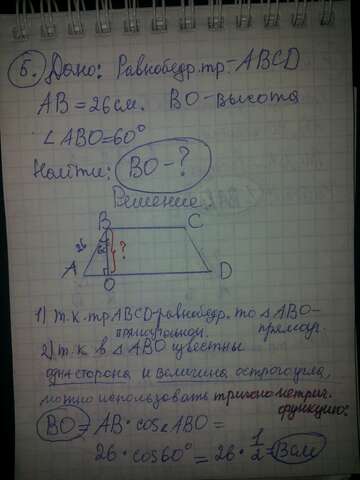 5. Дано: Равнобедр. тр-ABCD
AB = 26 см. BO - высота
∠ABO = 60°
Найти: BO - ?
Решение
B C
26 60° ?
A O D
1) т.к. тр ABCD - равнобедр. то △ABO -
прямоугольной. прямоуг.
2) т.к в △ABO известны
одна сторона и величина острого угла,
можно использовать тригонометрич.
функцию:
BO = AB · cos∠ABO =
26 · cos60° = 26 · 1/2 = 13см